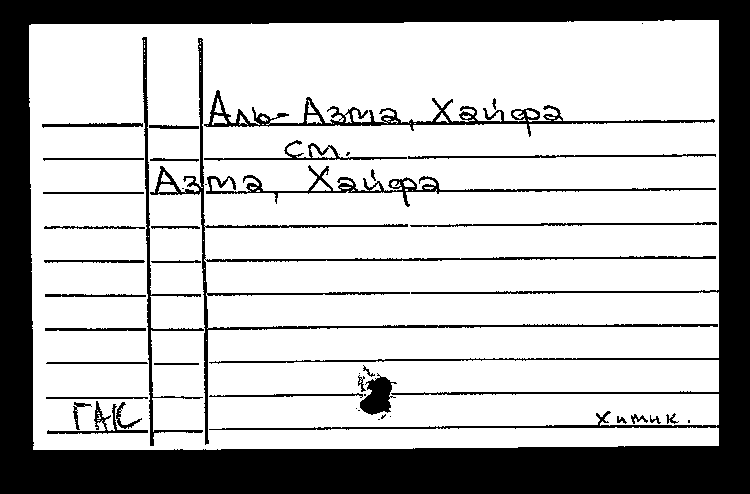 Аль-Азма, Хайфа
см.
Азма, Хайфа
ГАК
химик.